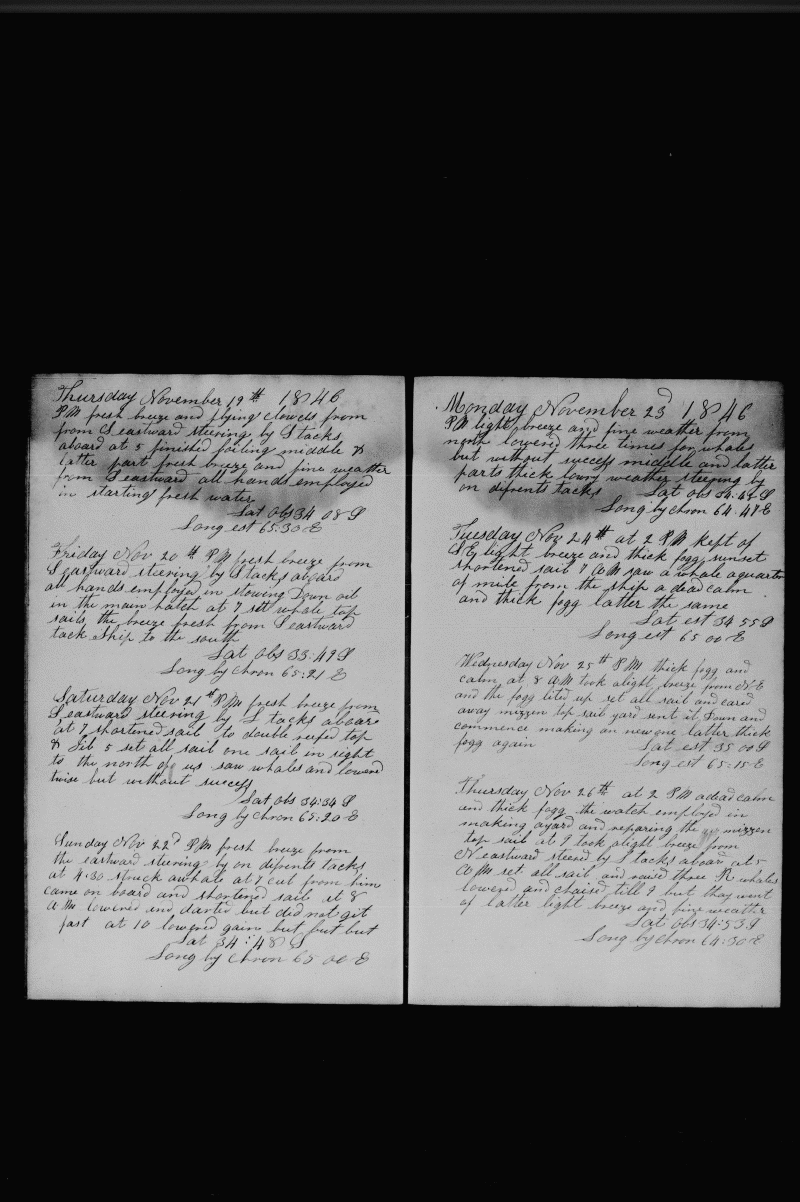 Thursday November 19th 1846
PM fresh breeze and flying clowds from
from S eastward steering by S tacks
aboard at 5 finished boiling middle &
latter part fresh breeze and fine weather
from S eastward all hands employed
in starting fresh water
Lat obs 34 08 S
Long est 65:30 E
Friday Nov 20th PM fresh breeze from
S eastward steering by S tacks aboard
all hands employed in stowing Down oil
in the main hatch at 7 set whole top
sails the breeze fresh from S eastward
tack Ship to the south
Lat obs 33:49 S
Long by Chron 65:21 E
Saturday Nov 21st PM fresh breeze from
S eastward steering by S tacks aboard
at 7 shortened sail to double reefed top
& Jib 5 set all sail one sail in sight
to the north of us saw whales and lowerd
twise but without success
Lat obs 34:34 S
Long by Chron 65:20 E
Sunday Nov 22d PM fresh breeze from
the eastward steering by on difrents tacks
at 4:30 struck awhale at 7 cut from him
came on board and shortened sail at 8
AM lowered and darted but did not git
fast at 10 lowered gain but but
Lat 34:48 S
Long by Chron 65 00 E
Monday November 23d 1846
PM light breeze and fine weather from
north lowered three times for whales
but without success middle and latter
parts thick lowry weather steering by
on difrents tacks Lat obs 34:49 S
Long by Chron 64:48 E
Tuesday Nov 24th at 2 PM kept of
S E light breeze and thick fogg sunset
shortened sail 7 AM saw a whale a quarter
of mile from the ship a dead calm
and thick fogg latter the same
Lat est 34 55 S
Long est 65 00 E
Wednesday Nov 25th PM thick fogg and
calm at 8 AM took alight breeze from N E
and the fogg lited up set all sail and cared
away mizzen top sail yard sent it Down and
commence making an new one latter thick
fogg again Lat est 35 00 S
Long est 65:15 E
Thursday Nov 26th at 2 PM adead calm
and thick fogg the watch employed in
making ayard and reparing the mizzen
top sail at 9 took alight breeze from
N eastward steered by S tacks aboar at 5
AM set all sail and raised three R whales
lowered and chaised till 9 but thay went
of latter light breeze and fine weather
Lat obs 34:53 S
Long by Chron 64:30 E